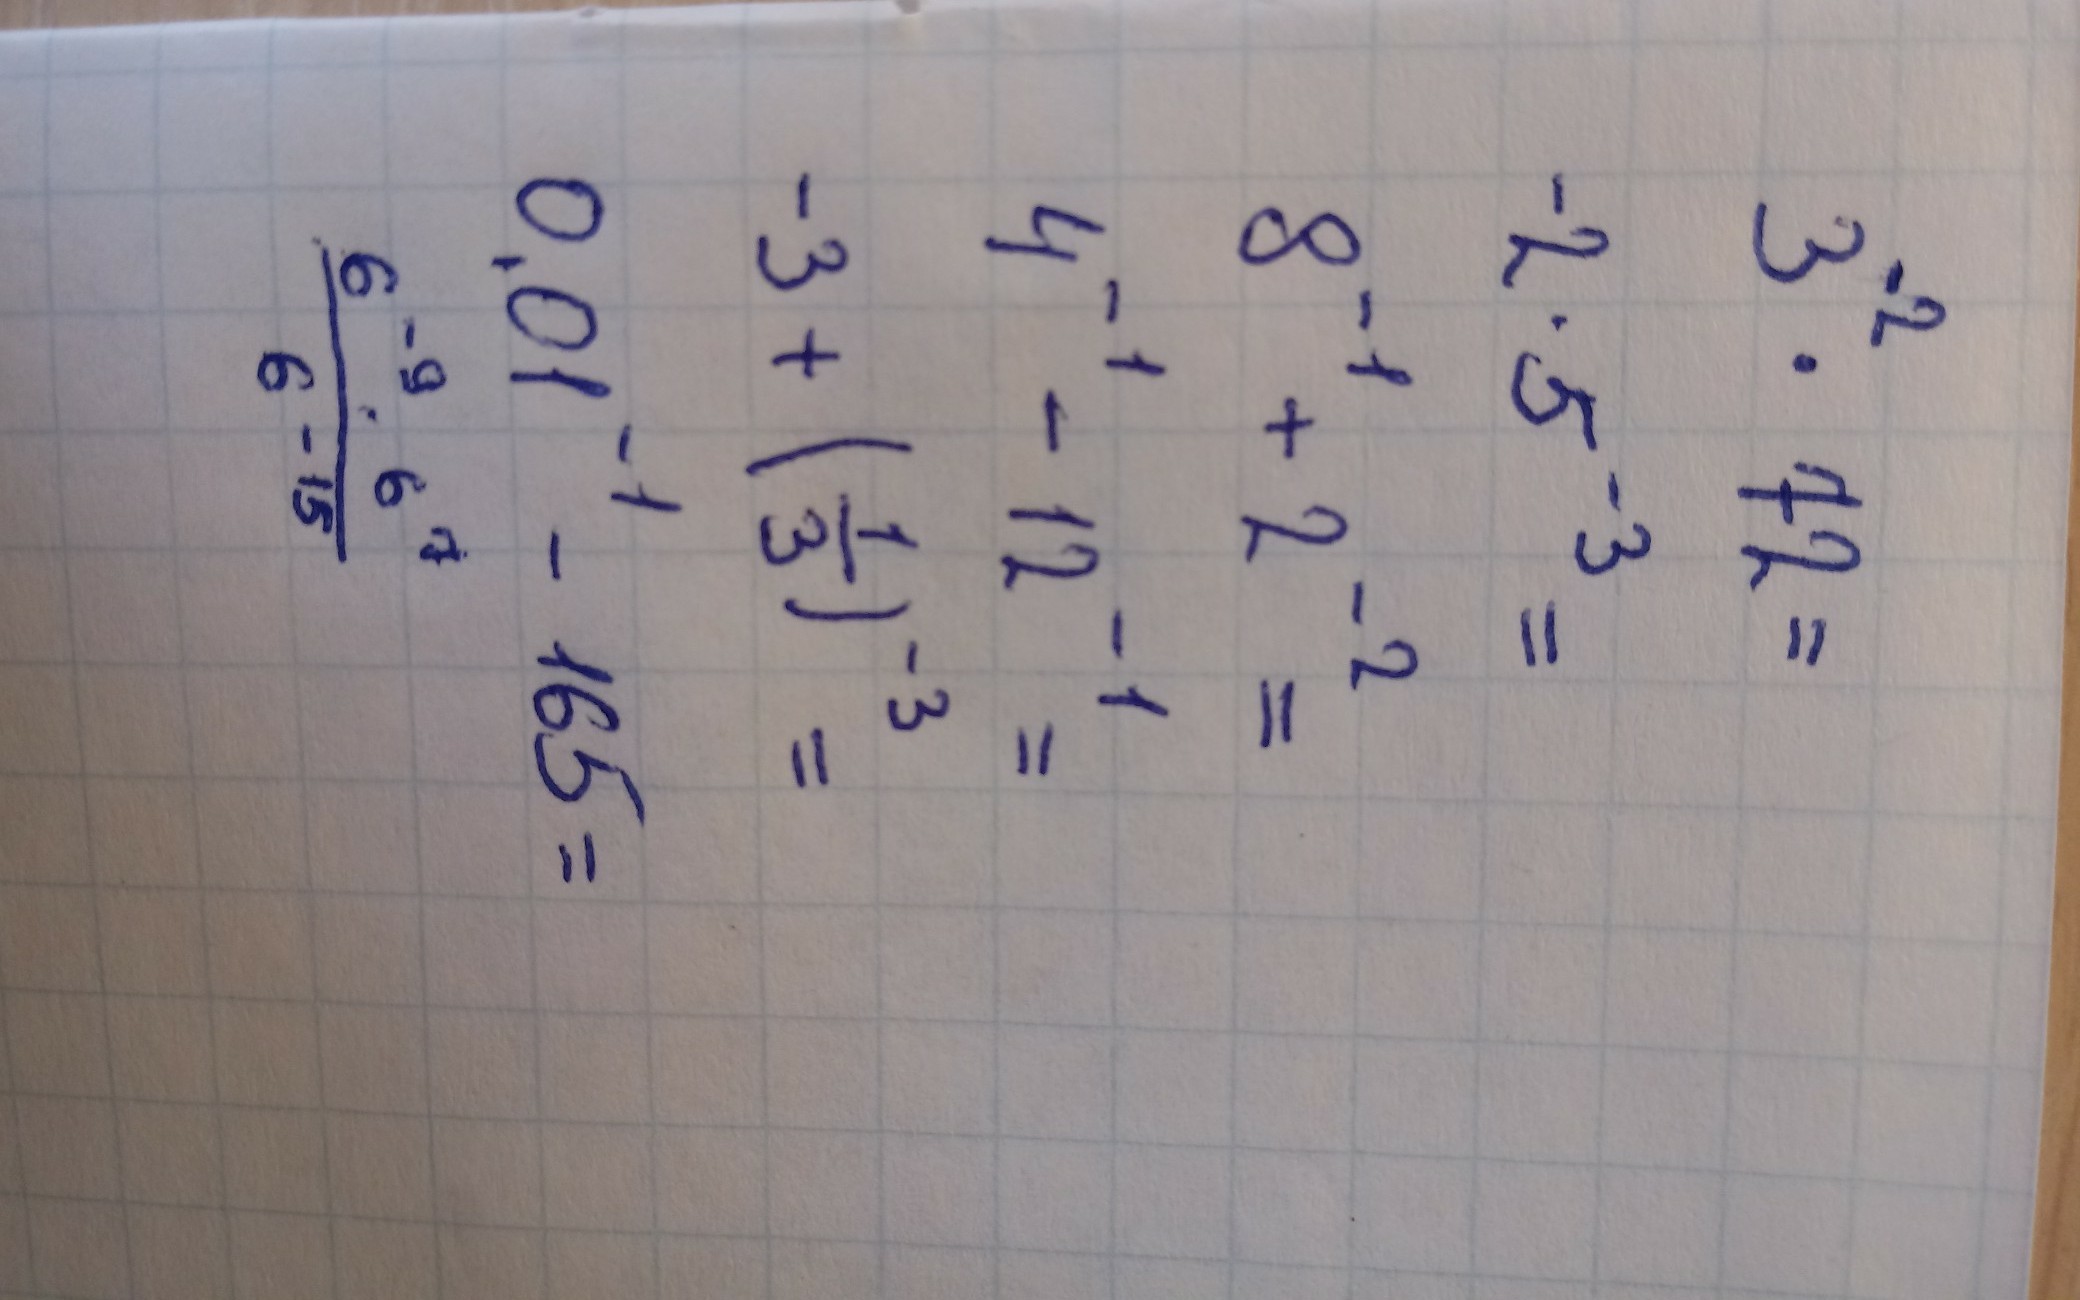 3⁻² · 72 =
-2 · 5⁻³ =
8⁻¹ + 2⁻² =
4⁻¹ - 12⁻¹ =
-3 + (1/3)⁻³ =
0,01⁻¹ - 165 =
6⁻⁹ · 6⁷
6⁻¹⁵